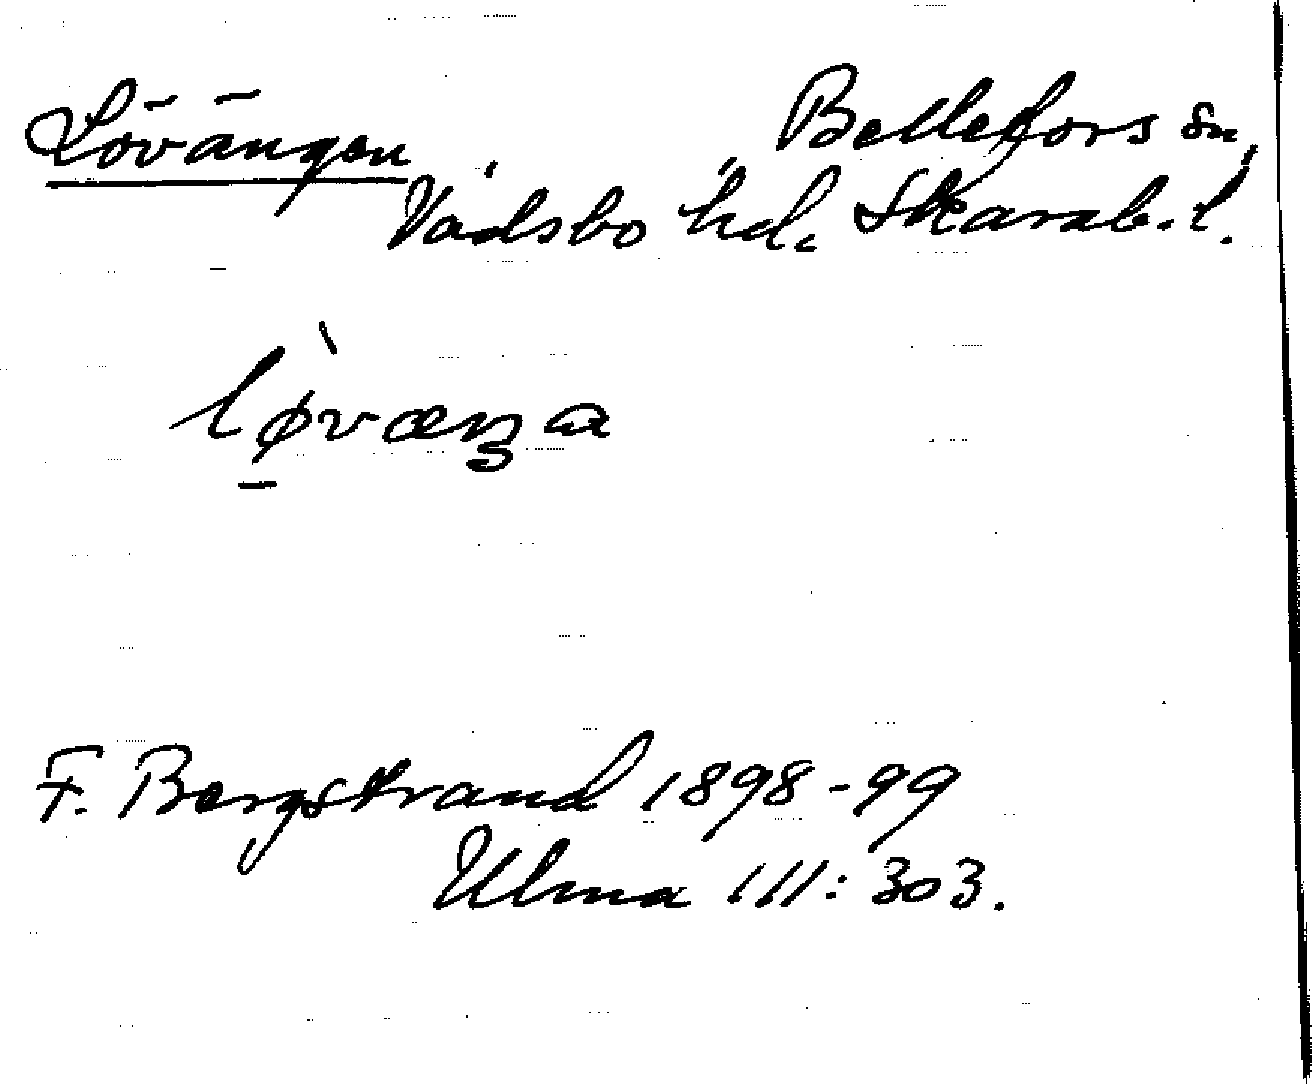 Lövängen Bellefors sn,
Vadsbo hd. Skarab. l.
lø̠̀væŋa
F. Bergstrand 1898-99
Ulma 111:303.